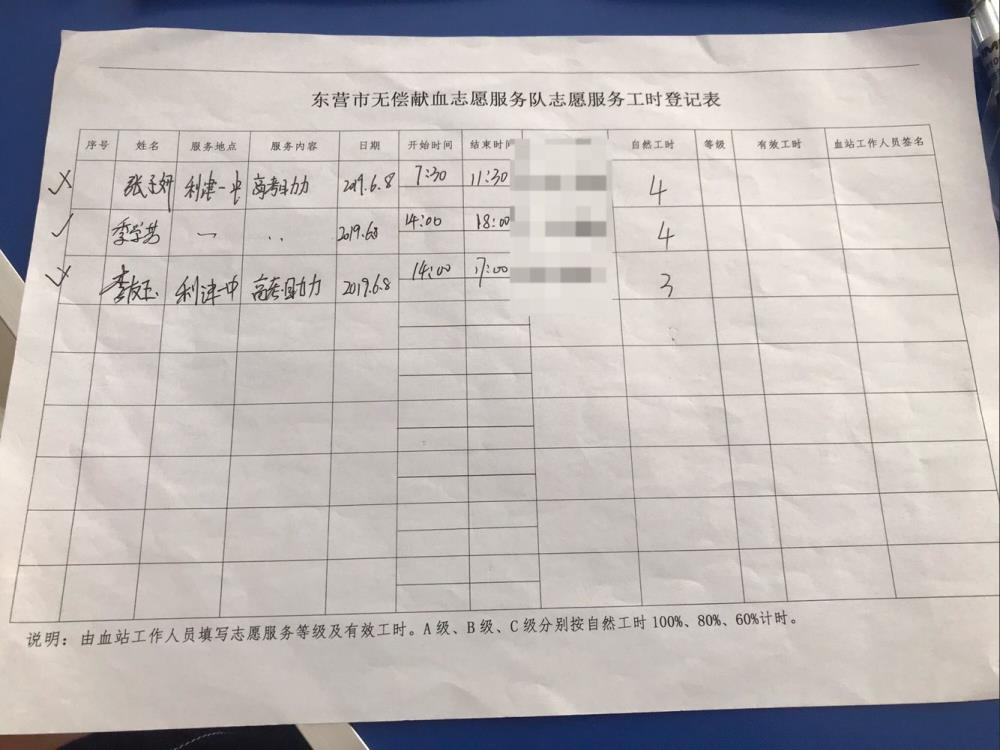 东营市无偿献血志愿服务队志愿服务工时登记表
序号 姓名 服务地点 服务内容 日期 开始时间 结束时间 自然工时 等级 有效工时 血站工作人员签名
张子妍 利津一中 高考助力 2019.6.8 7:30 11:30 4
季学芳 一 .. 2019.6.8 14:00 18:00 4
利津一中 高考助力 2019.6.8 14:00 17:00 3
说明：由血站工作人员填写志愿服务等级及有效工时。A级、B级、C级分别按自然工时100%、80%、60%计时。